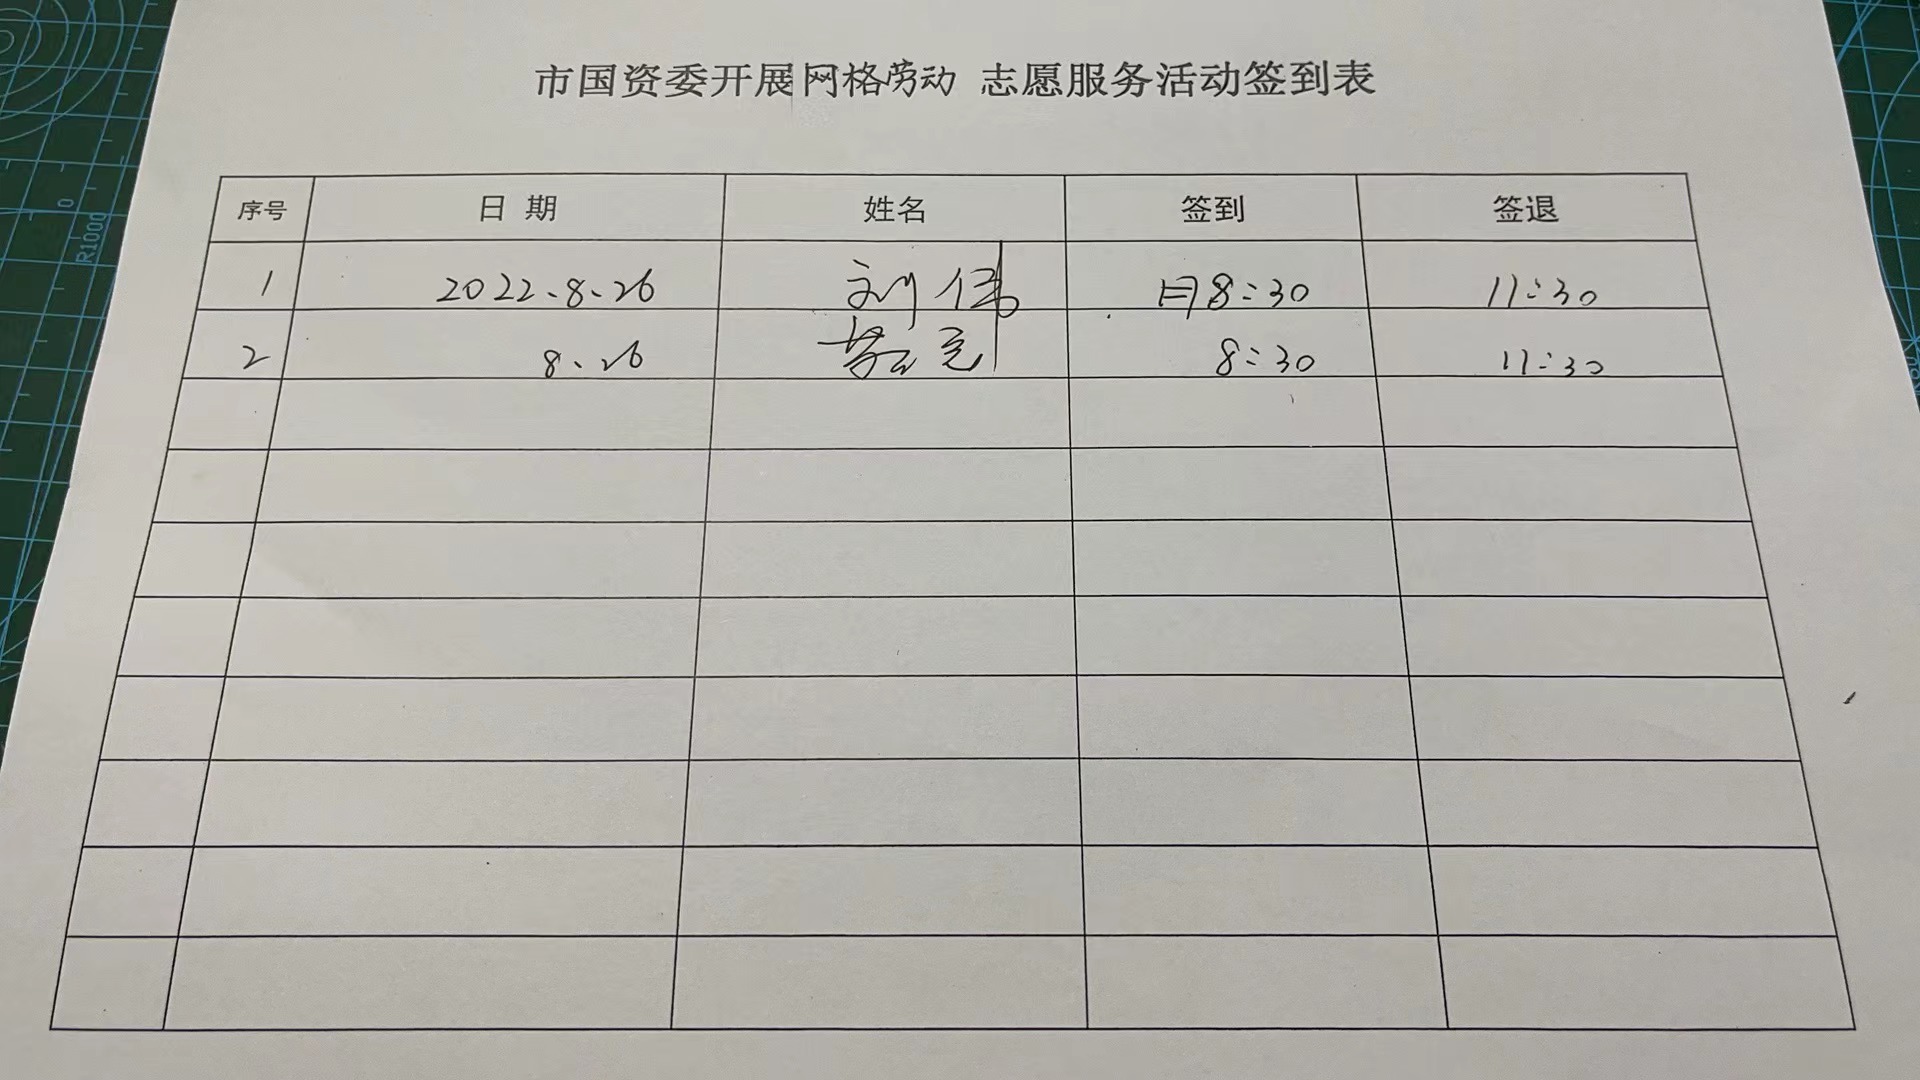 市国资委开展网格劳动 志愿服务活动签到表
序号 日期 姓名 签到 签退
1 2022、8、26 刘伟 8:30 11:30
2 8、26 8:30 11:30
R1000
0